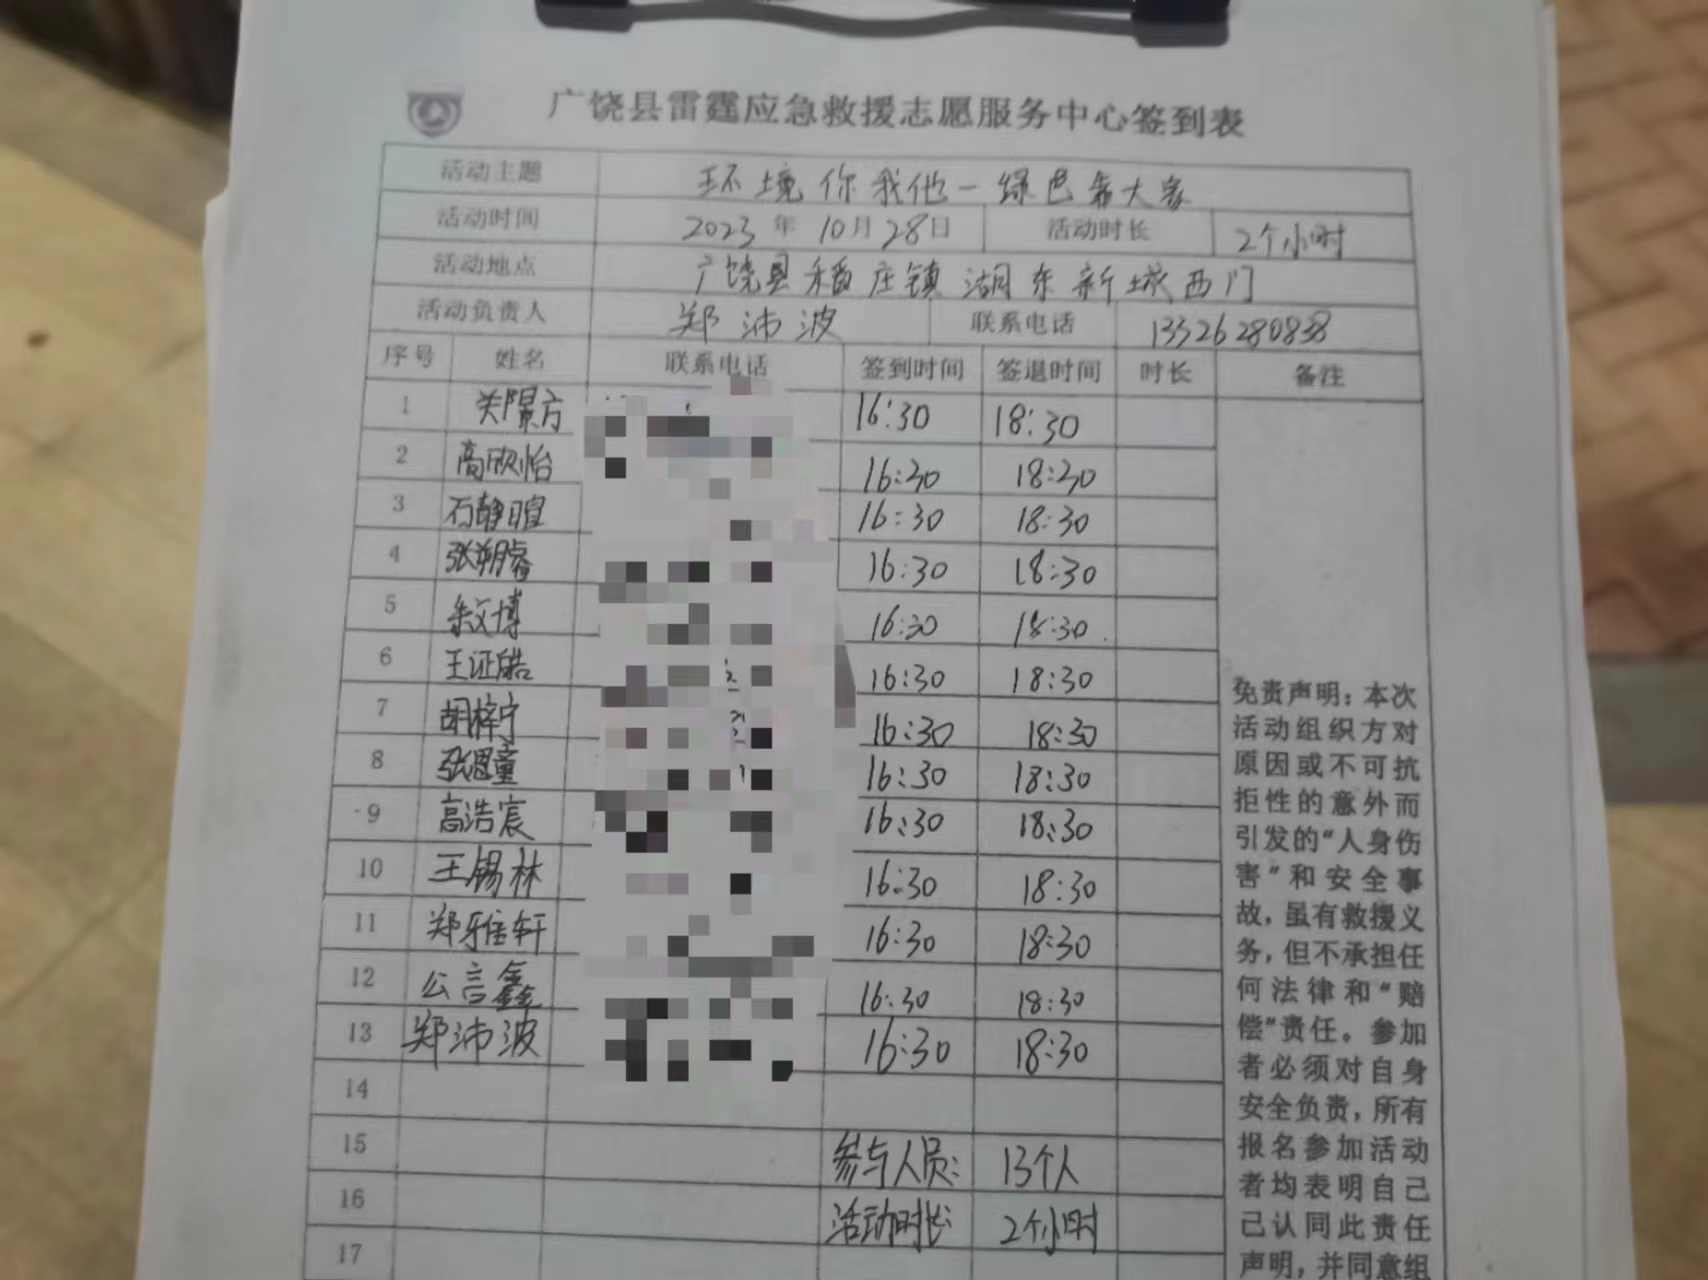 广饶县雷霆应急救援志愿服务中心签到表
活动主题 环境你我他一绿色靠大家
活动时间 2023年10月28日 活动时长 2个小时
活动地点 广饶县稻庄镇湖东新城西门
活动负责人 郑沛波 联系电话 13326280838
序号 姓名 联系电话 签到时间 签退时间 时长 备注
1 关景方 16:30 18:30
2 高欣怡 16:30 18:30
3 石静暄 16:30 18:30
4 张朔睿 16:30 18:30
5 文博 16:30 18:30
6 王证皓 16:30 18:30
7 胡梓宁 16:30 18:30
8 张思童 16:30 18:30
9 高浩宸 16:30 18:30
10 王锡林 16:30 18:30
11 郑雅轩 16:30 18:30
12 公言鑫 16:30 18:30
13 郑沛波 16:30 18:30
14
15 参与人员: 13个人
16 活动时长: 2个小时
17
免责声明：本次
活动组织方对
原因或不可抗
拒性的意外而
引发的“人身伤
害”和安全事
故，虽有救援义
务，但不承担任
何法律和“赔
偿”责任。参加
者必须对自身
安全负责，所有
报名参加活动
者均表明自己
已认同此责任
声明，并同意组